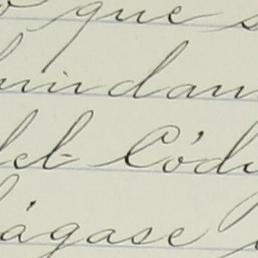 o que s
uindan
del Códi
ágase